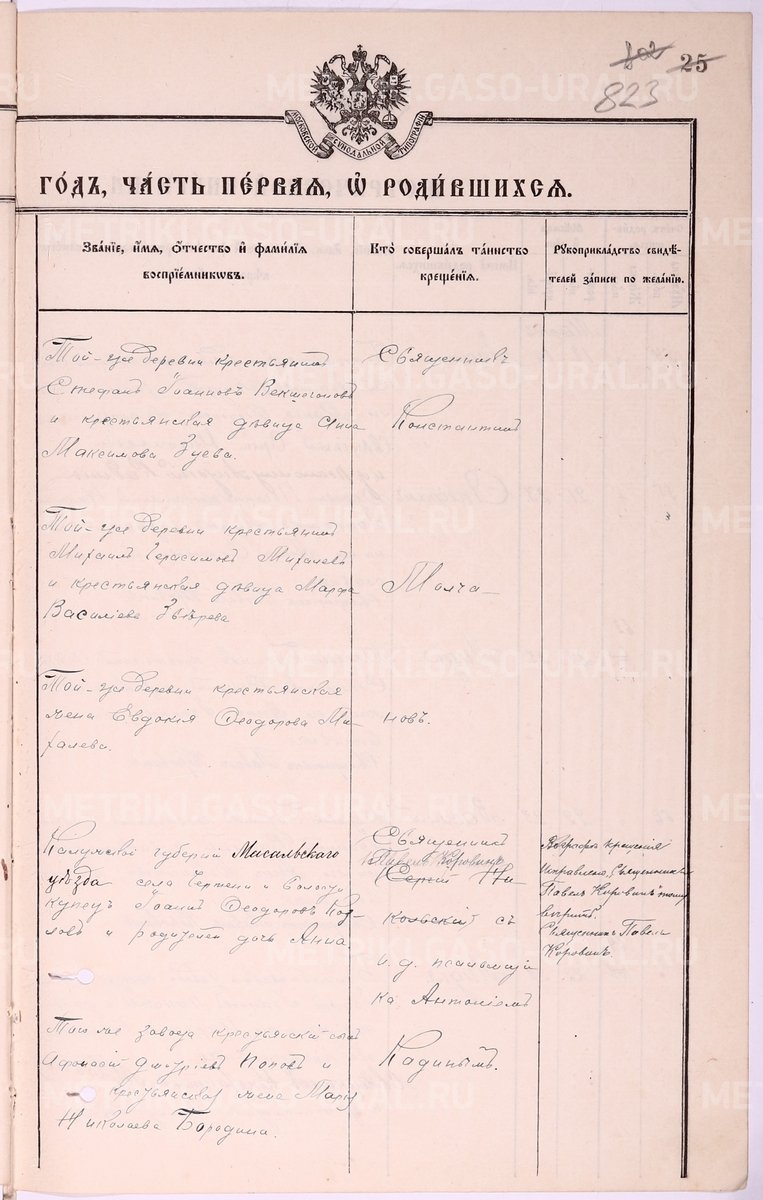 802 25
823
МОСКОВСКОЙ СѴНОДАЛЬНОЙ ТИПОГРАФІИ
ГО́ДЪ, ЧА́СТЬ ПЕ́РВАЯ, Ѡ҆ РОДИ́ВШИХСЯ.
Зва́нїе, и҆́мѧ, ѻ҆́тчество и҆ фами́лїѧ
воспрїе́мникѡвъ.
Кто̀ соверша́лъ та́инство
креще́нїѧ.
Рꙋкоприкла́дство свидѣ́-
телей за́писи по жела́нїю.
Той-же деревни крестьянинъ
Стефанъ Іоанновъ Векшегоновъ
и крестьянская дѣвица Анна
Максимова Зуева.
Священникъ
Константинъ
Той-же деревни крестьянинъ
Михаилъ Герасимовъ Михалевъ
и крестьянская дѣвица Марфа
Василіева Звѣрева
Молча-
Той-же деревни крестьянская
жена Евдокія Ѳеодорова Ми-
халева.
новъ.
Калужской губерніи Масальскаго
уѣзда села
купецъ Іоаннъ Ѳеодоровъ Коз-
ловъ и родителей дочь Анна
Священникъ
Павелъ Коровинъ
(Сергій Ни-
кольскій съ
и. д. псаломщи
ка Антоніемъ
Кадинымъ.
крещенія
Исправлено, Священникъ
Павелъ Коровинъ"
вѣрить.
Священникъ Павелъ
Коровинъ.
Того же завода крестьянскій сынъ
Афанасій Дмитріевъ Поповъ и
крестьянская жена Марія
Николаева Бородина.
METRIKI.GASO-URAL.RU